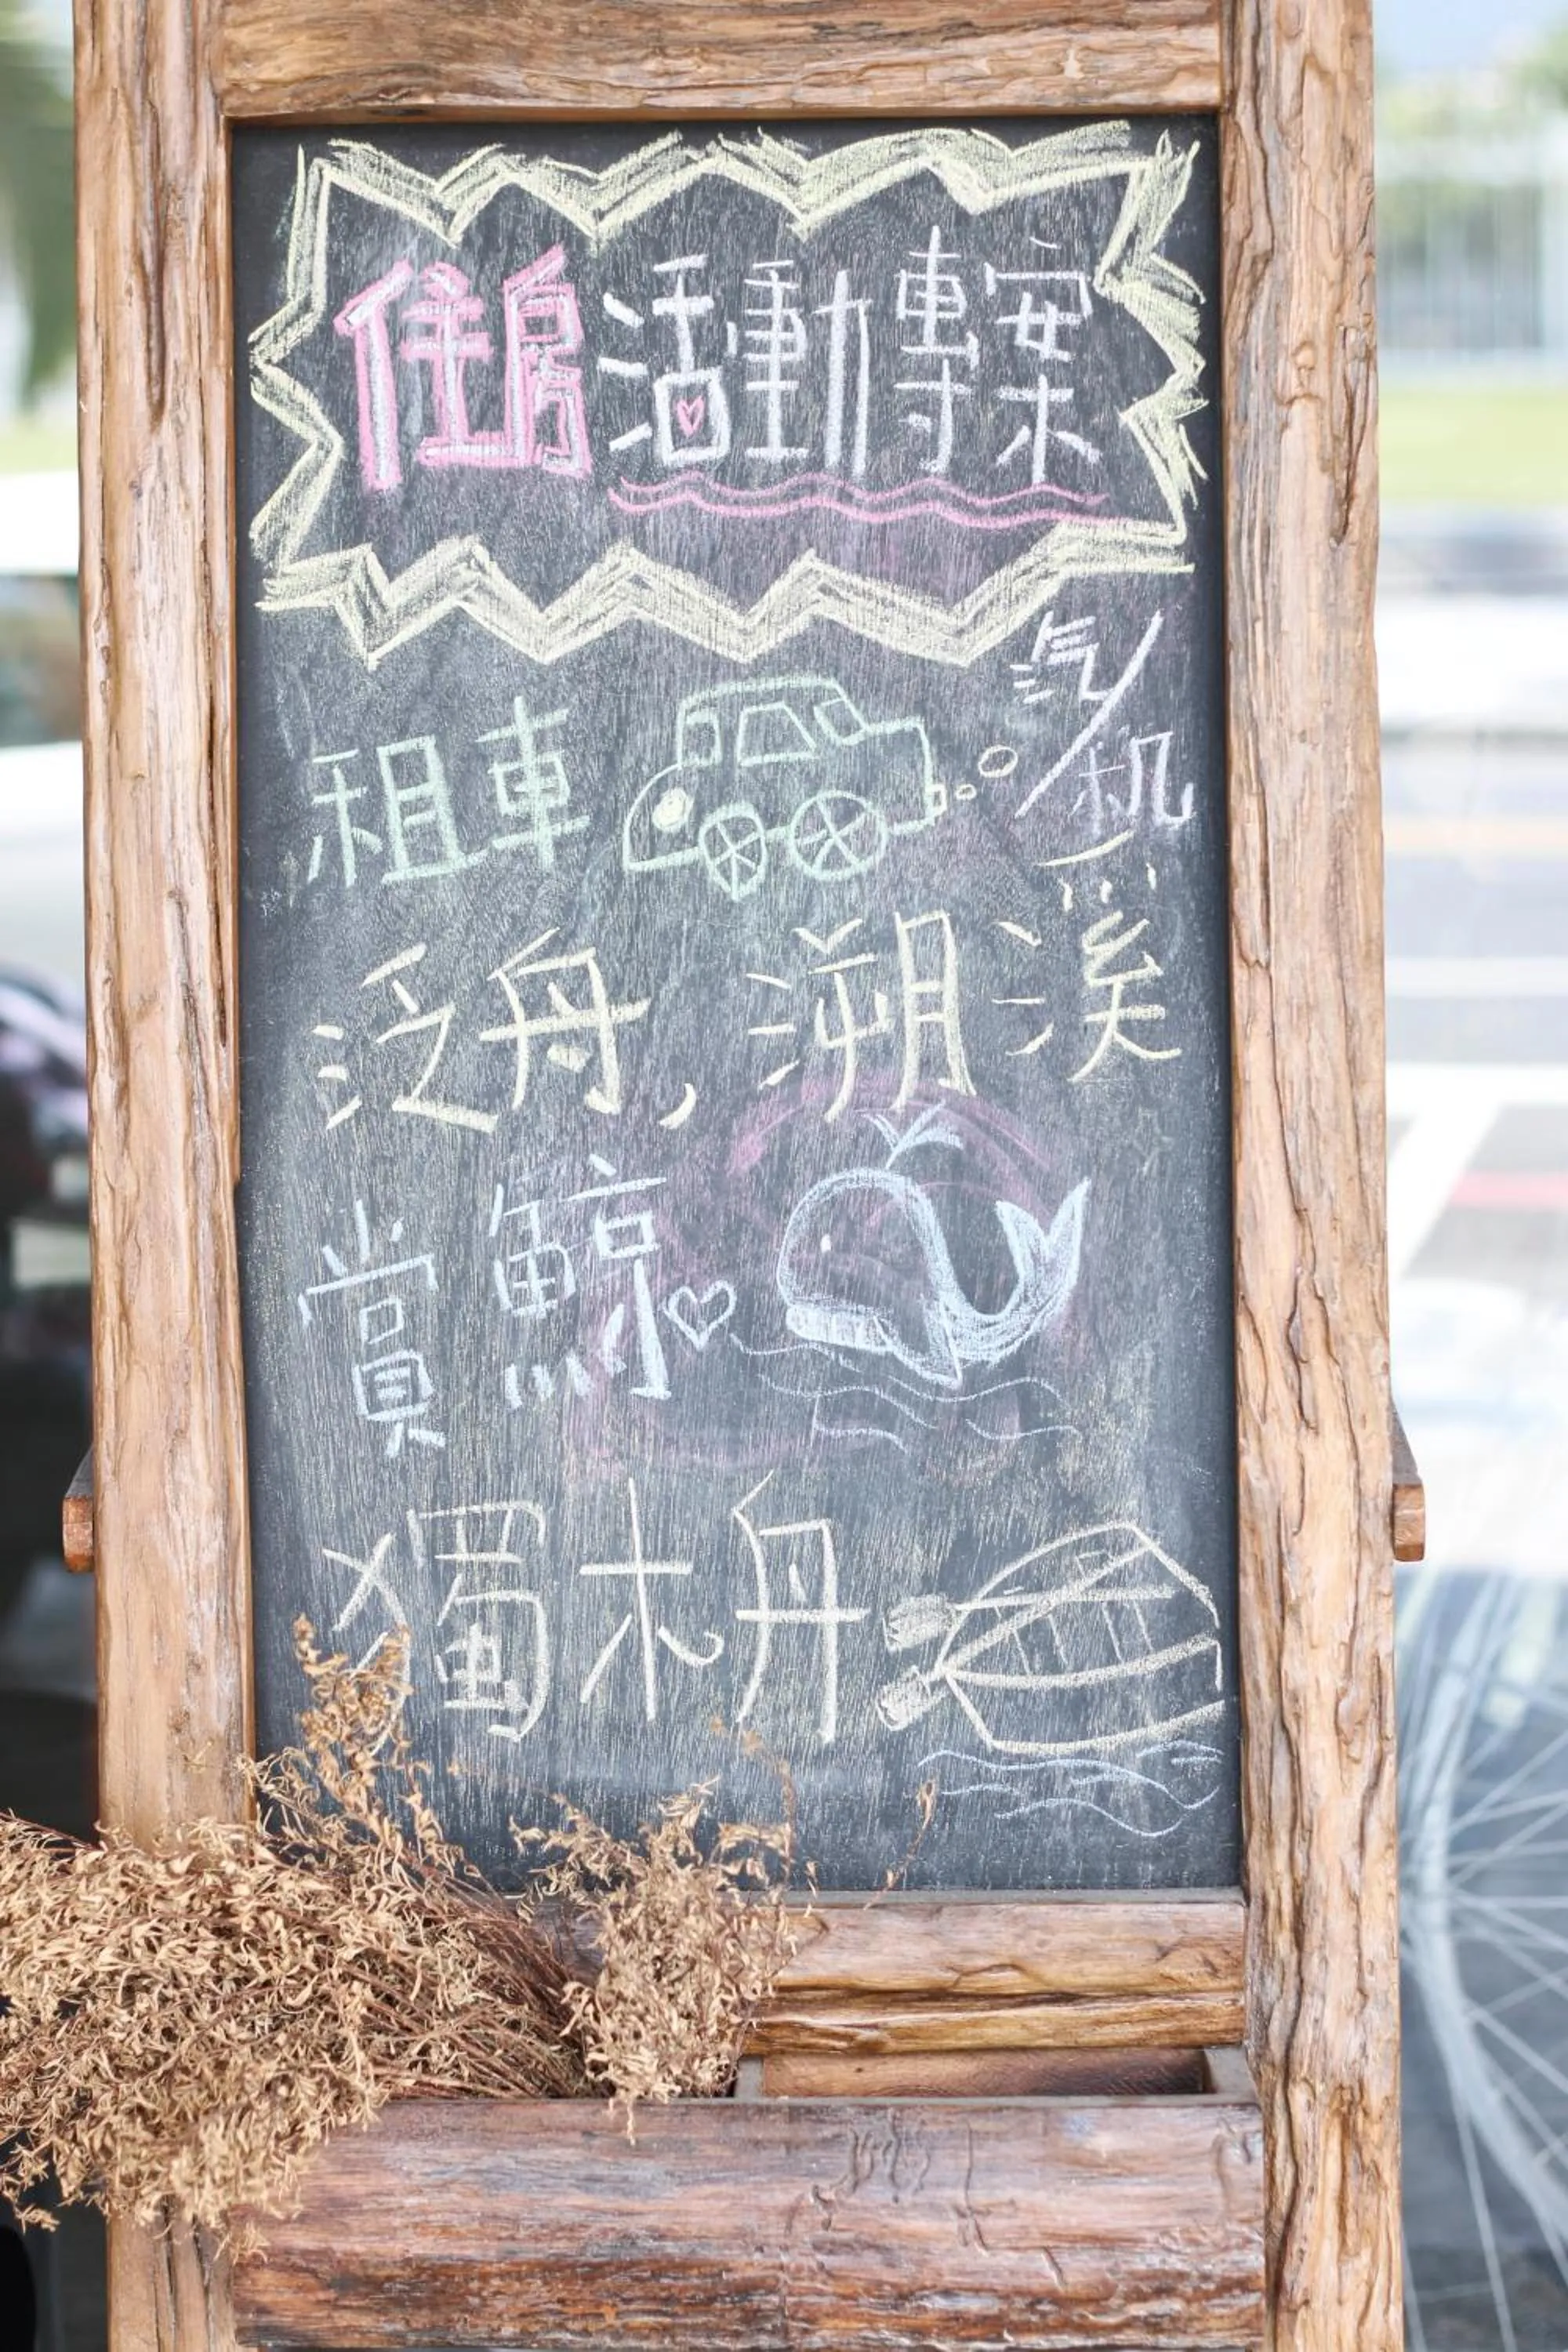 住房活動專案
租車 汽/机
泛舟,溯溪
賞鯨♡
獨木舟